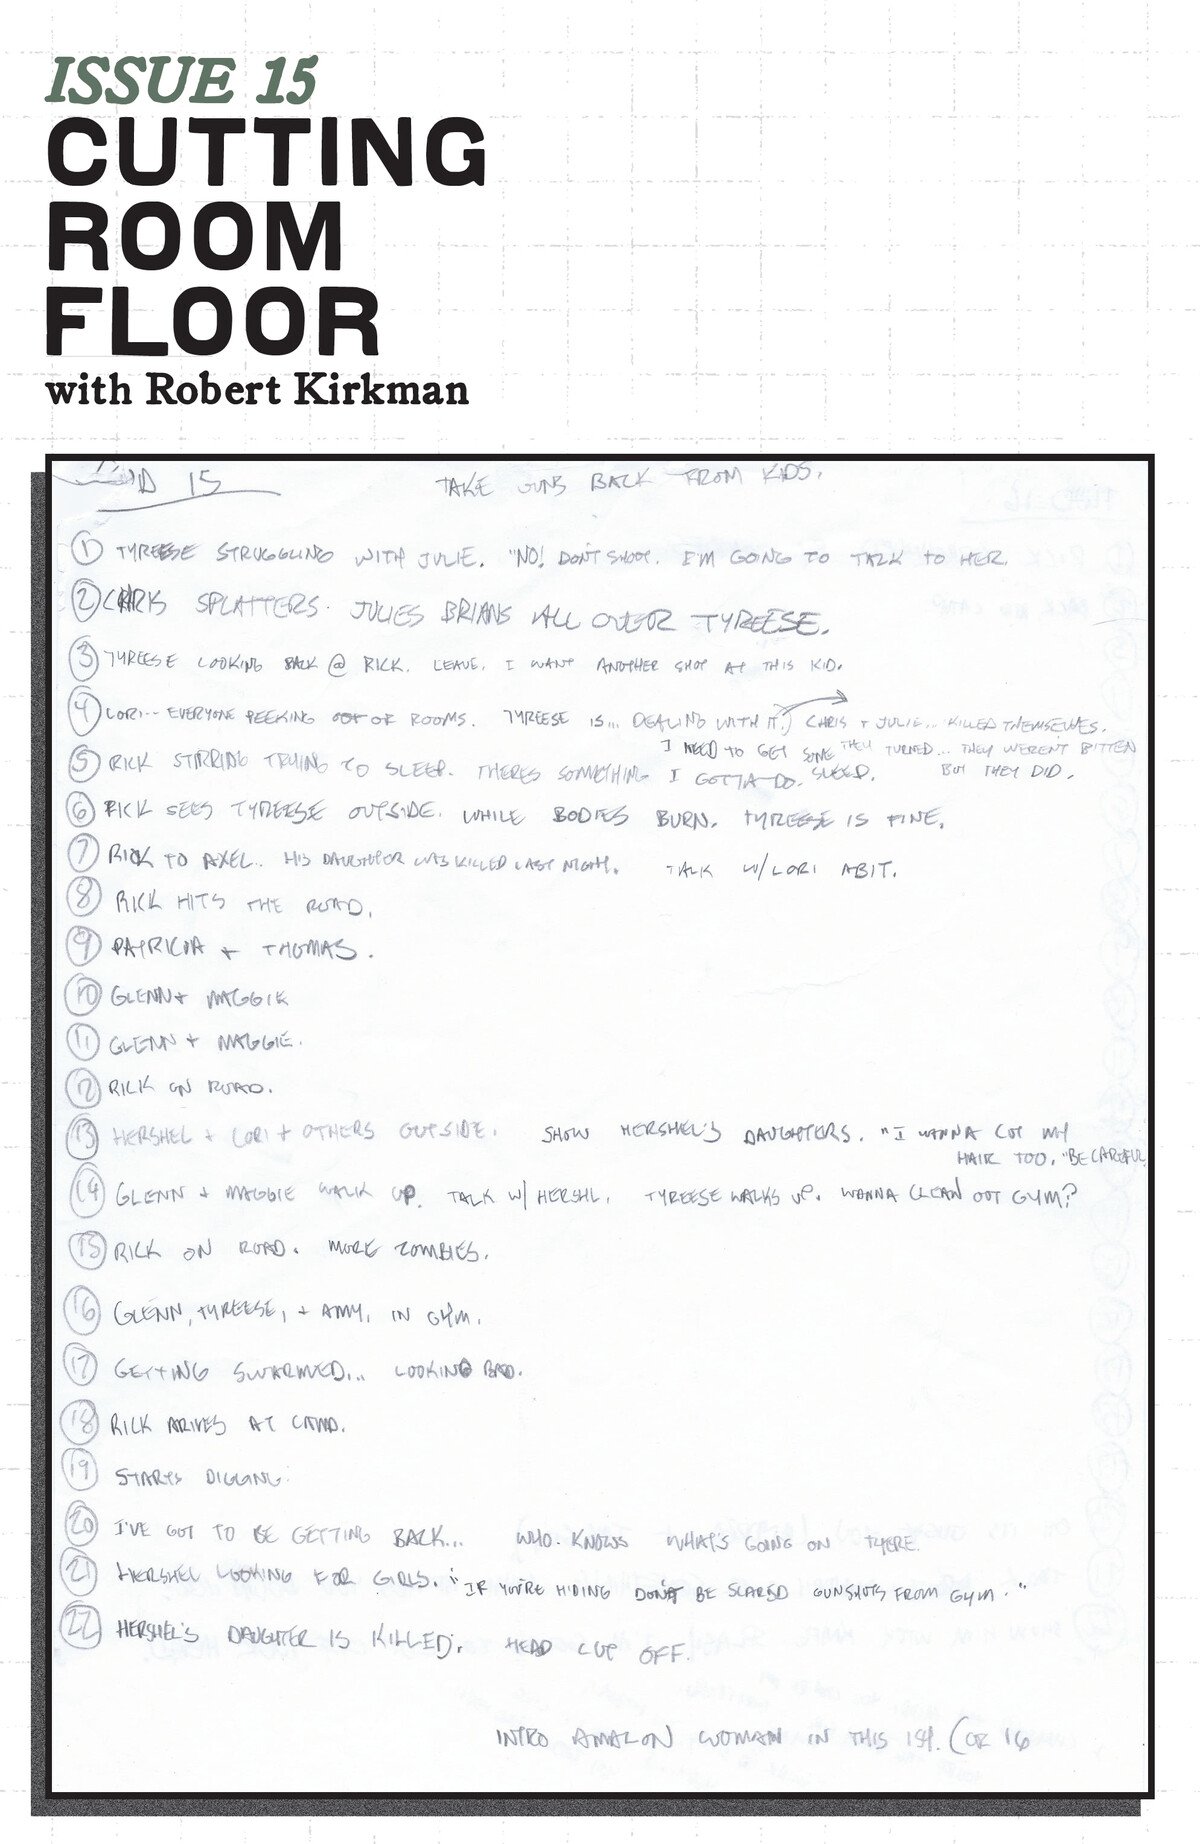 ISSUE 15
CUTTING
ROOM
FLOOR
with Robert Kirkman
15 TAKE GUNS BACK FROM KIDS.
1 TYREESE STRUGGLING WITH JULIE. "NO! DON'T SHOOT. I'M GOING TO TALK TO HER.
2 CHRIS SPLATTERS JULIES BRIANS ALL OVER TYREESE.
3 TYREESE LOOKING BACK @ RICK. LEAVE. I WANT ANOTHER SHOT AT THIS KID.
4 LORI... EVERYONE PEEKING OUT OF ROOMS. TYREESE IS... DEALING WITH IT.) CHRIS + JULIE... KILLED THEMSELVES.
I NEED TO GET SOME THEY TURNED... THEY WEREN'T BITTEN
5 RICK STIRRING TRYING TO SLEEP. THERES SOMETHING I GOTTA DO. SLEEP. BUT THEY DID.
6 RICK SEES TYREESE OUTSIDE. WHILE BODIES BURN. TYREESE IS FINE.
7 RICK TO AXEL.. HIS DAUGHTER WAS KILLED LAST NIGHT. TALK W/ LORI ABIT.
8 RICK HITS THE ROAD.
9 PATRICIA + THOMAS.
10 GLENN + MAGGIE
11 GLENN + MAGGIE.
12 RICK ON ROAD.
13 HERSHEL + LORI + OTHERS OUTSIDE. SHOW HERSHEL'S DAUGHTERS. "I WANNA CUT MY
HAIR TOO. "BE CAREFUL
14 GLENN + MAGGIE WALK UP. TALK W/ HERSHL. TYREESE WALKS UP. WANNA CLEAN OUT GYM?
15 RICK ON ROAD. MORE ZOMBIES.
16 GLENN, TYREESE, + AMY, IN GYM.
17 GETTING SWARMED... LOOKING BAD.
18 RICK ARIVES AT CAMP.
19 STARTS DIGGING.
20 I'VE GOT TO BE GETTING BACK... WHO KNOWS WHAT'S GOING ON THERE.
21 HERSHEL LOOKING FOR GIRLS. "IF YOU'RE HIDING DON'T BE SCARED GUNSHOTS FROM GYM."
22 HERSHEL'S DAUGHTER IS KILLED. HEAD CUT OFF.
INTRO AMAZON WOMAN IN THIS ISH. (OR 16